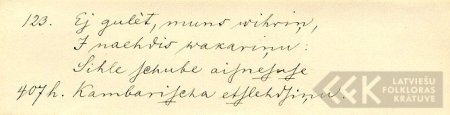 123. Ej gulèt, muns wihriņ,
J naehdis wakariņu:
Sihle schube aisnesuse
407h. Kambarischa etslehdsiņu.
LATVIEŠU
FOLKLORAS
KRĀTUVE